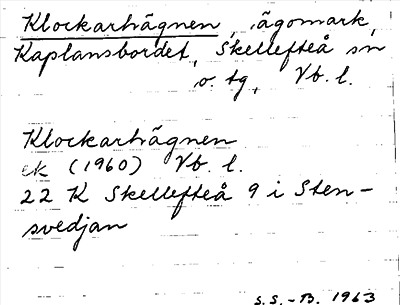 Klockarhägnen, ägomark,
Kaplansbordet, Skellefteå sn
o. tg, Vb. l.
Klockarhägnen
ek (1960) Vb. l.
22 K Skellefteå 9 i Sten-
svedjan
S.S.-B. 1963